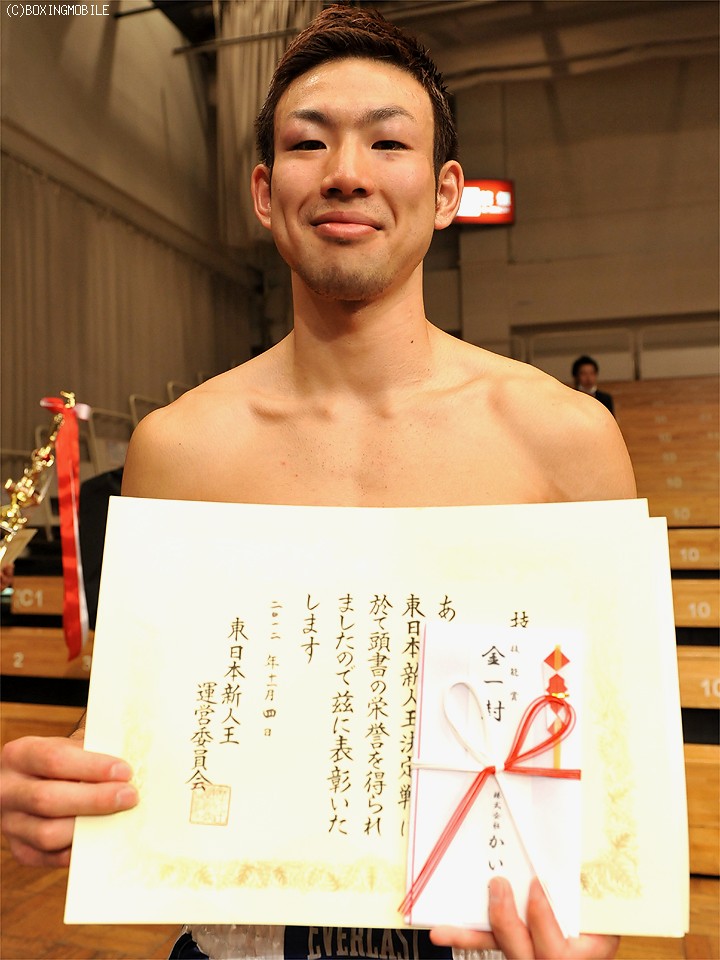 (C)BOXINGMOBILE
技
あ
東日本新人王決定戦に
於て頭書の栄誉を得られ
ましたので茲に表彰いた
します
二〇一二年十一月四日
東日本新人王
運営委員会
技能賞
金一封
株式会社 かい
C1
2
10
10
10
10
EVERLAST